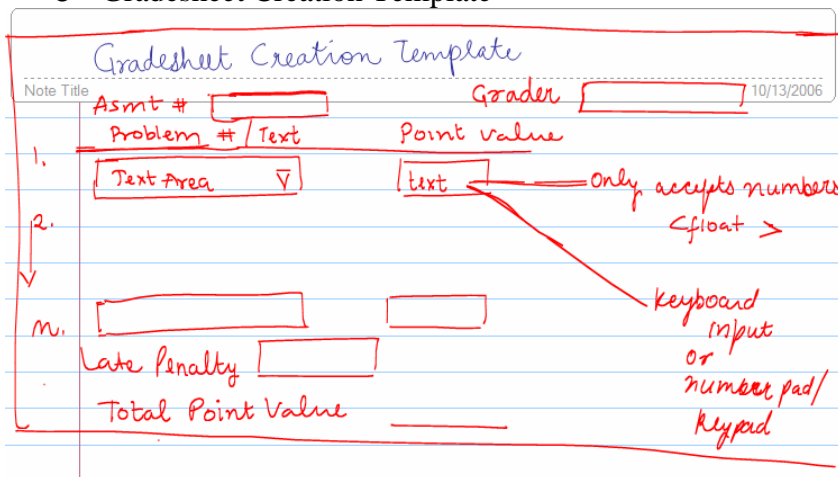 Gradesheet Creation Template
Gradesheet Creation Template
Note Title
10/13/2006
Asmt #
Grader
Problem # / Text
Point value
1.
Text Area
text
only accepts numbers
<float>
2.
keyboard
input
or
number pad/
keypad
n.
Late Penalty
Total Point Value